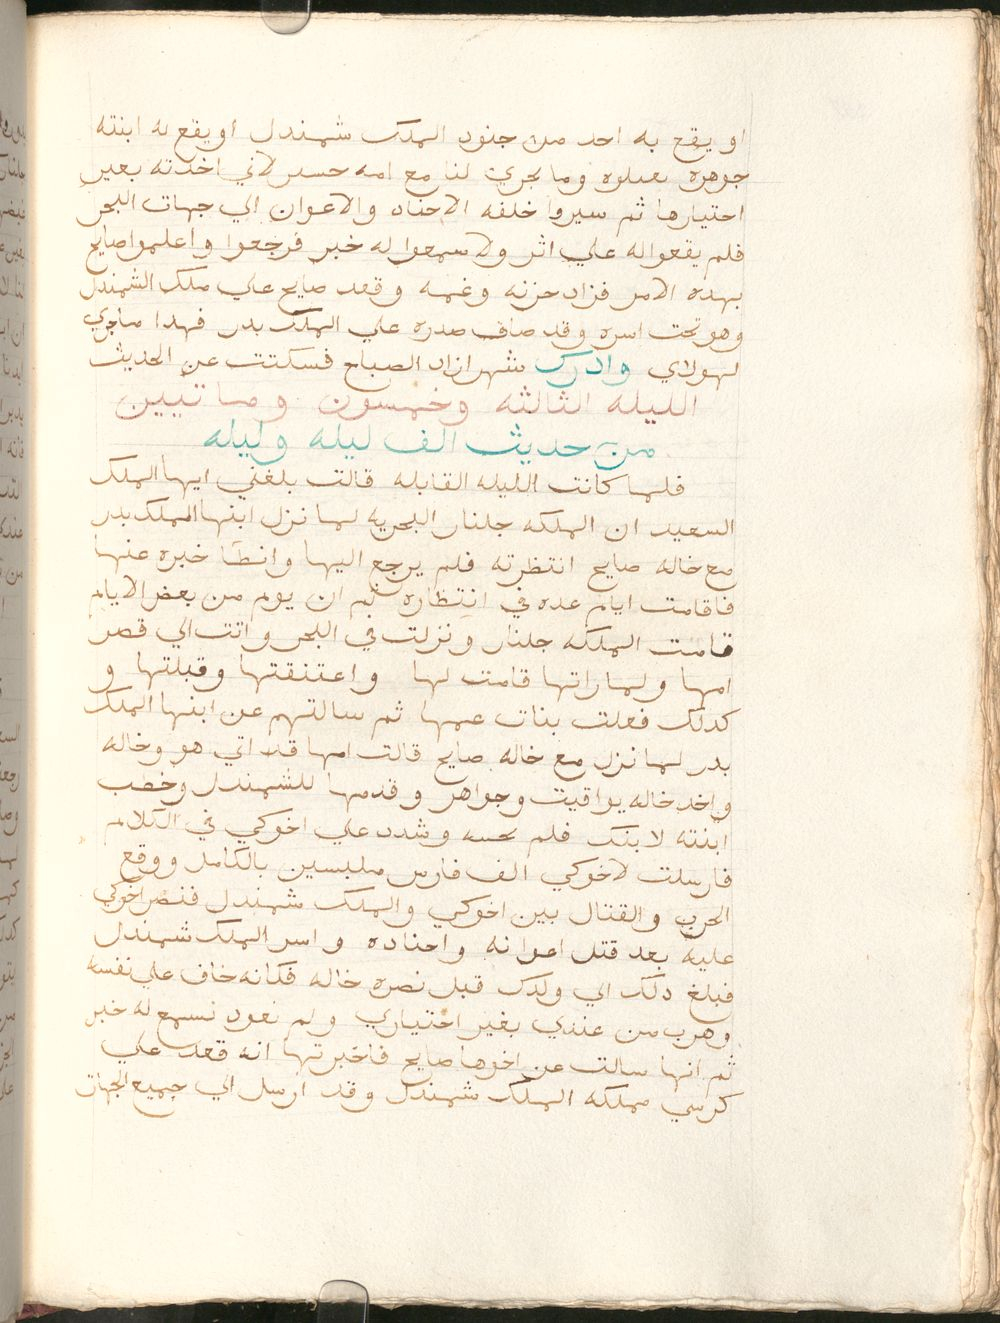 او يقع به احد من جنود الملك شمندل او يقع له ابنته
جوهره يقتلوه وما يجري لنا مع امه حسن لاني اخدته بغير
اختيارها ثم سيروا خلفه الاجناد والاعوان الي جهات البحر
فلم يقعوا له علي اثر ولا سمعوا له خبر فرجعوا واعلموا صايح
بهده الامر فزاد حزنه وغمه وقعد صايح علي ملك الشمندل
وهو تحت اسره وقد ضاق صدره علي الملك بدر فهدا ماجري
لهولاي وادرك شهرازاد الصباح فسكتت عن الحديث
الليله الثالثه وخمسون وماتيين
من حديث الف ليله وليله
فلما كانت الليله القابله قالت بلغني ايها الملك
السعيد ان الملكه جلنار البحريه لما نزل ابنها الملك بدر
مع خاله صايح انتظرته فلم يرجع اليها وانطا خبره عنها
فاقامت ايام عده في انتظاره ثم ان يوم من بعض الايام
قامت الملكه جلنار ونزلت في البحر واتت الي قصر
امها ولما راتها قامت لها واعتنقتها وقبلتها و
كدلك فعلت بنات عمها ثم سالتهم عن ابنها الملك
بدر لما نزل مع خاله صايح قالت امها قد اتي هو وخاله
واخد خاله يواقيت وجواهر وقدمها للشمندل وخطب
ابنته لابنك فلم يجبه وشدد علي اخوكي في الكلام
فارسلت لاخوكي الف فارس ملبسين بالكامل ووقع
الحرب والقتال بين اخوكي والملك شمندل فنصر اخوكي
عليه بعد قتل اعوانه واجناده واسر الملك شمندل
فبلغ دلك الي ولدك قبل نصره خاله فكانه خاف علي نفسه
وهرب من عندي بغير اختياري ولم نعود نسمع له خبر
ثم انها سالت عن اخوها صايح فاخبرتها انه قعد علي
كرسي مملكه الملك شمندل وقد ارسل الي جميع الجهات